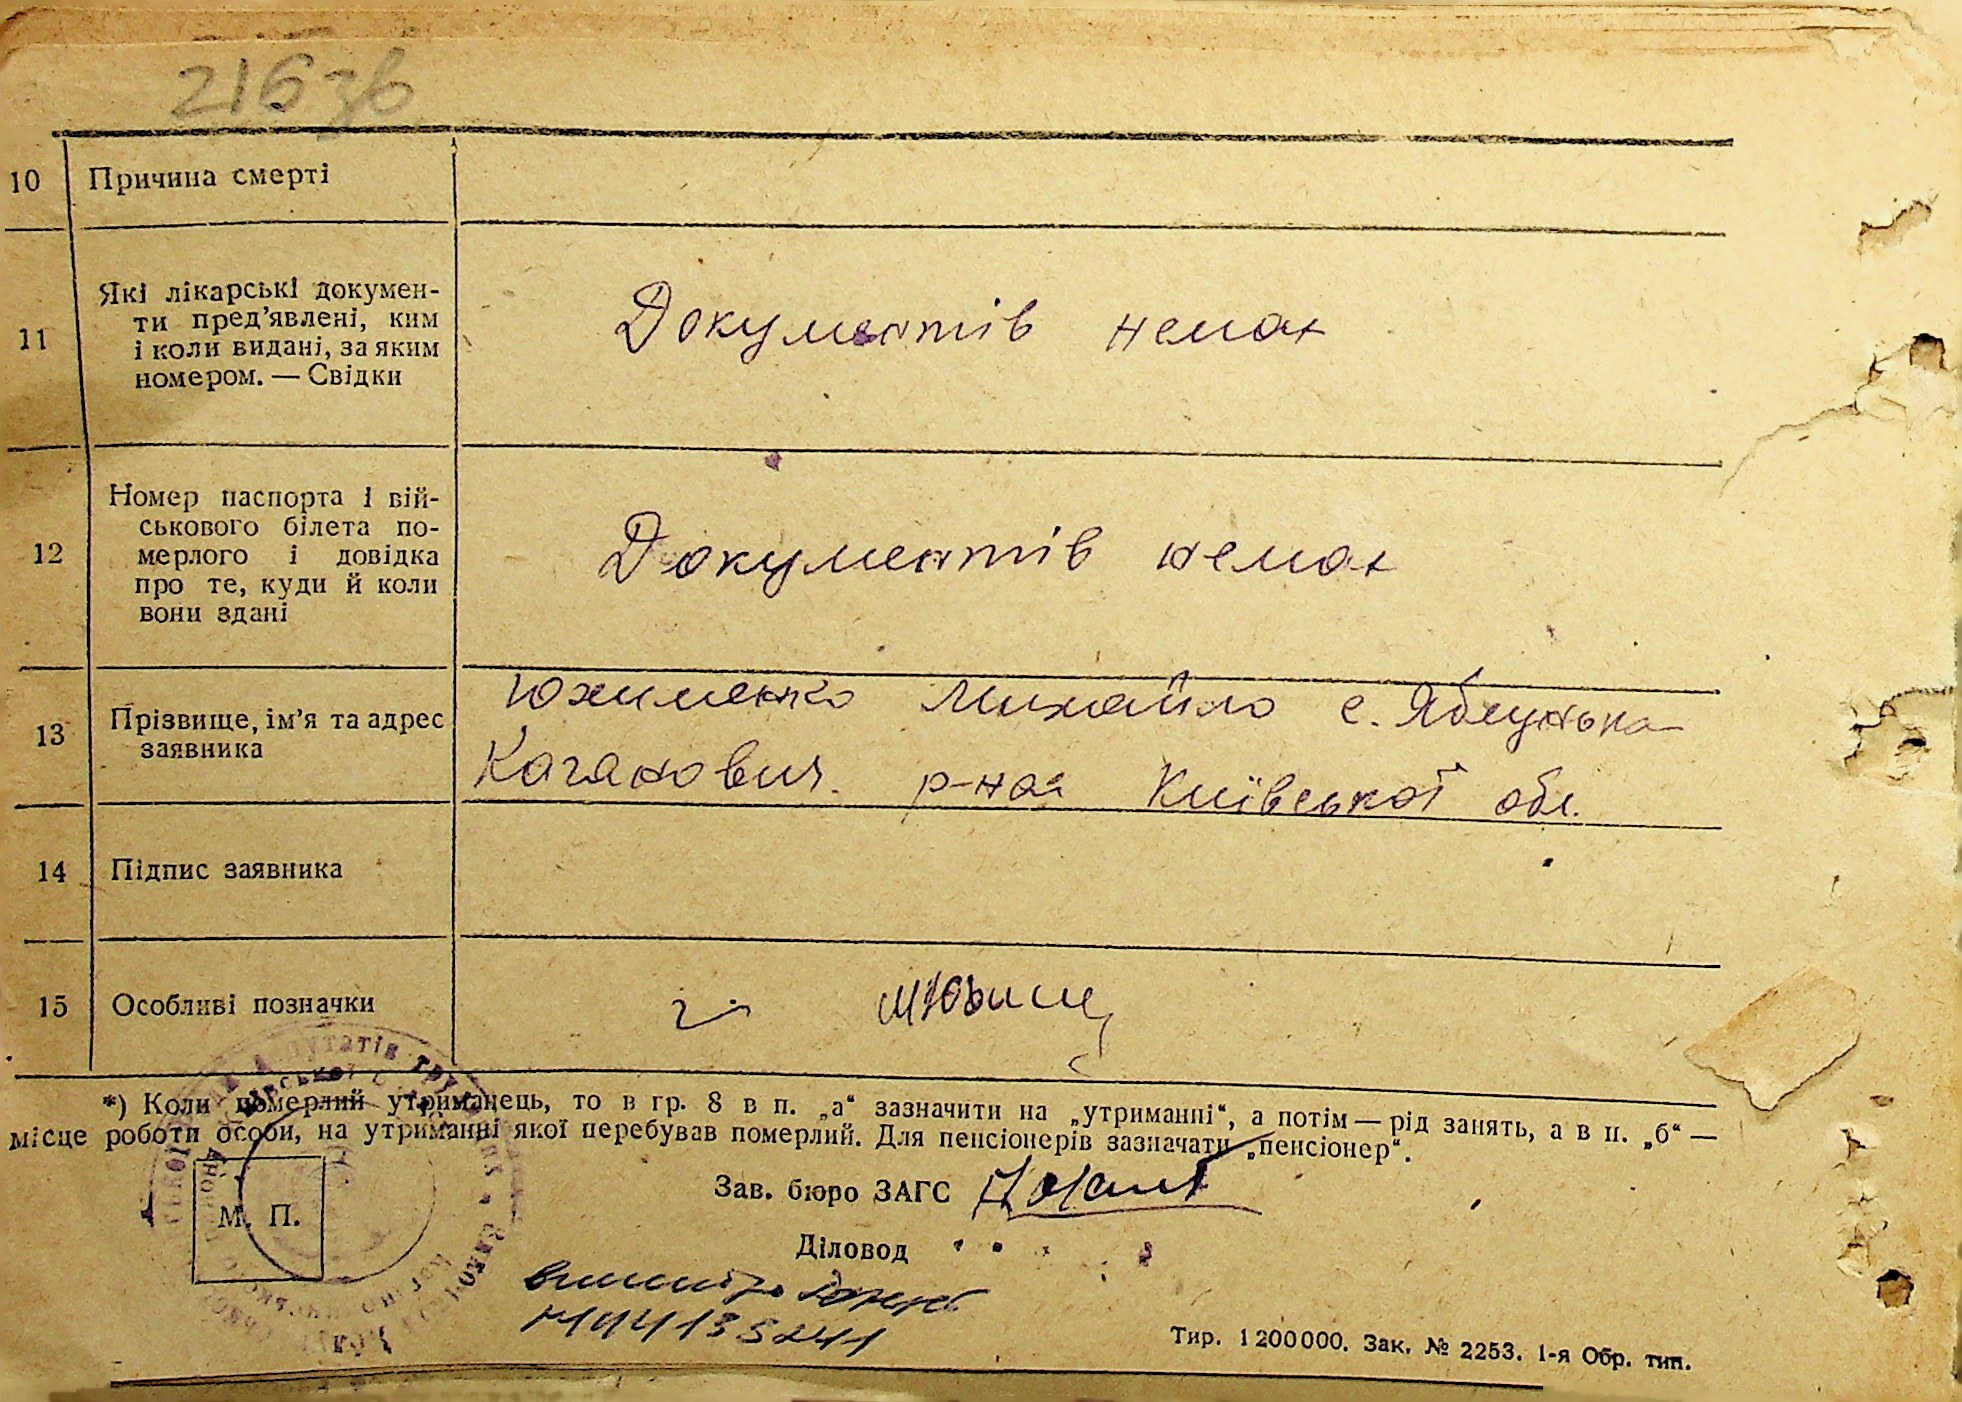 216 зв
10 Причина смерті
11 Які лікарські докумен-
ти пред’явлені, ким
і коли видані, за яким
номером. — Свідки
Документів немає
12 Номер паспорта і вій-
ськового білета по-
мерлого і довідка
про те, куди й коли
вони здані
Документів немає
13 Прізвище, ім’я та адрес
заявника
Юхименко Михайло с. Яблунька
Каганович. р-ная Київської обл.
14 Підпис заявника
15 Особливі позначки
*) Коли померлий утриманець, то в гр. 8 в п. „а“ зазначити на „утриманні“, а потім — рід занять, а в п. „б“ —
місце роботи особи, на утриманні якої перебував померлий. Для пенсіонерів зазначати „пенсіонер“.
Зав. бюро ЗАГС
М. П.
Діловод
Тир. 1 200 000. Зак. № 2253. 1-я Обр. тип.